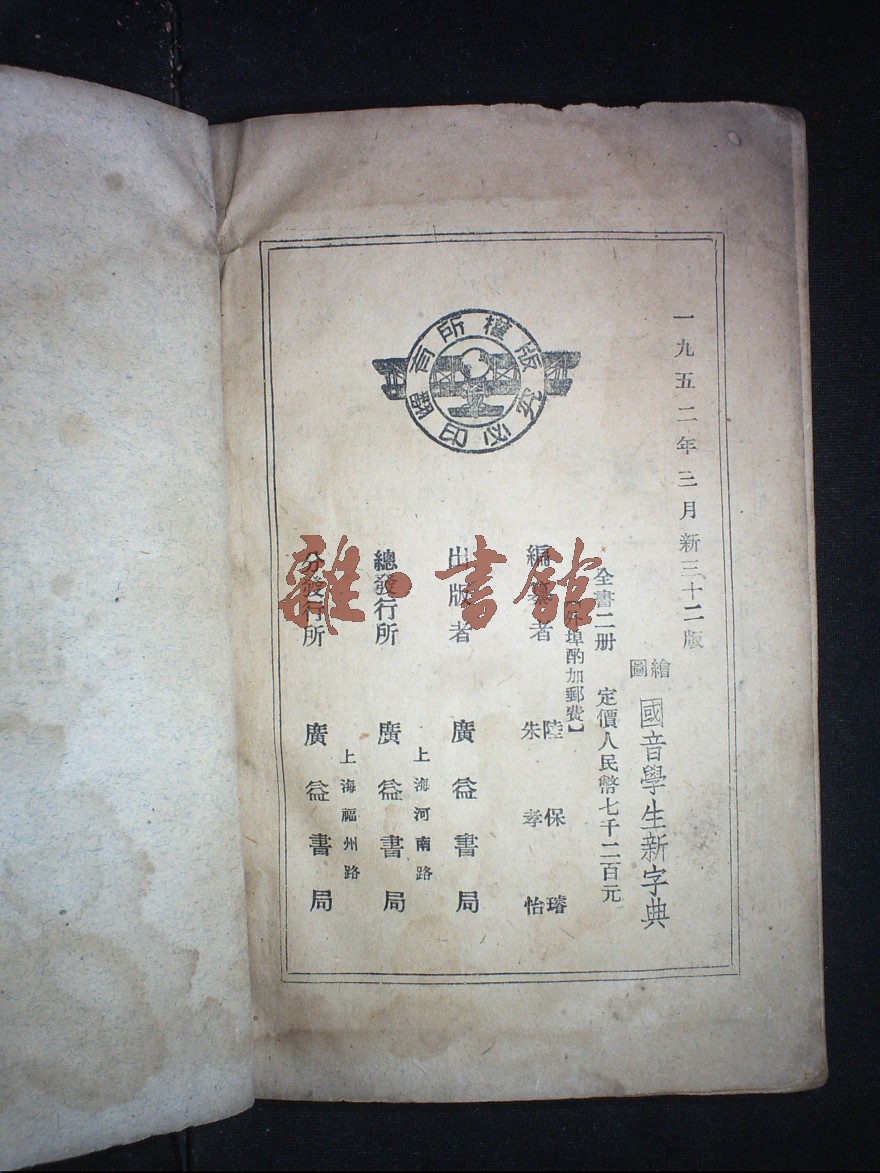 一九五二年三月新三十二版
繪圖
國音學生新字典
全書二册 定價人民幣七千二百元
埠酌加郵費】
編者
陸保璿
朱孝怡
出版者 廣益書局
上海河南路
總發行所 廣益書局
上海福州路
分發行所 廣益書局
版權所有
翻印必究
雜·書館